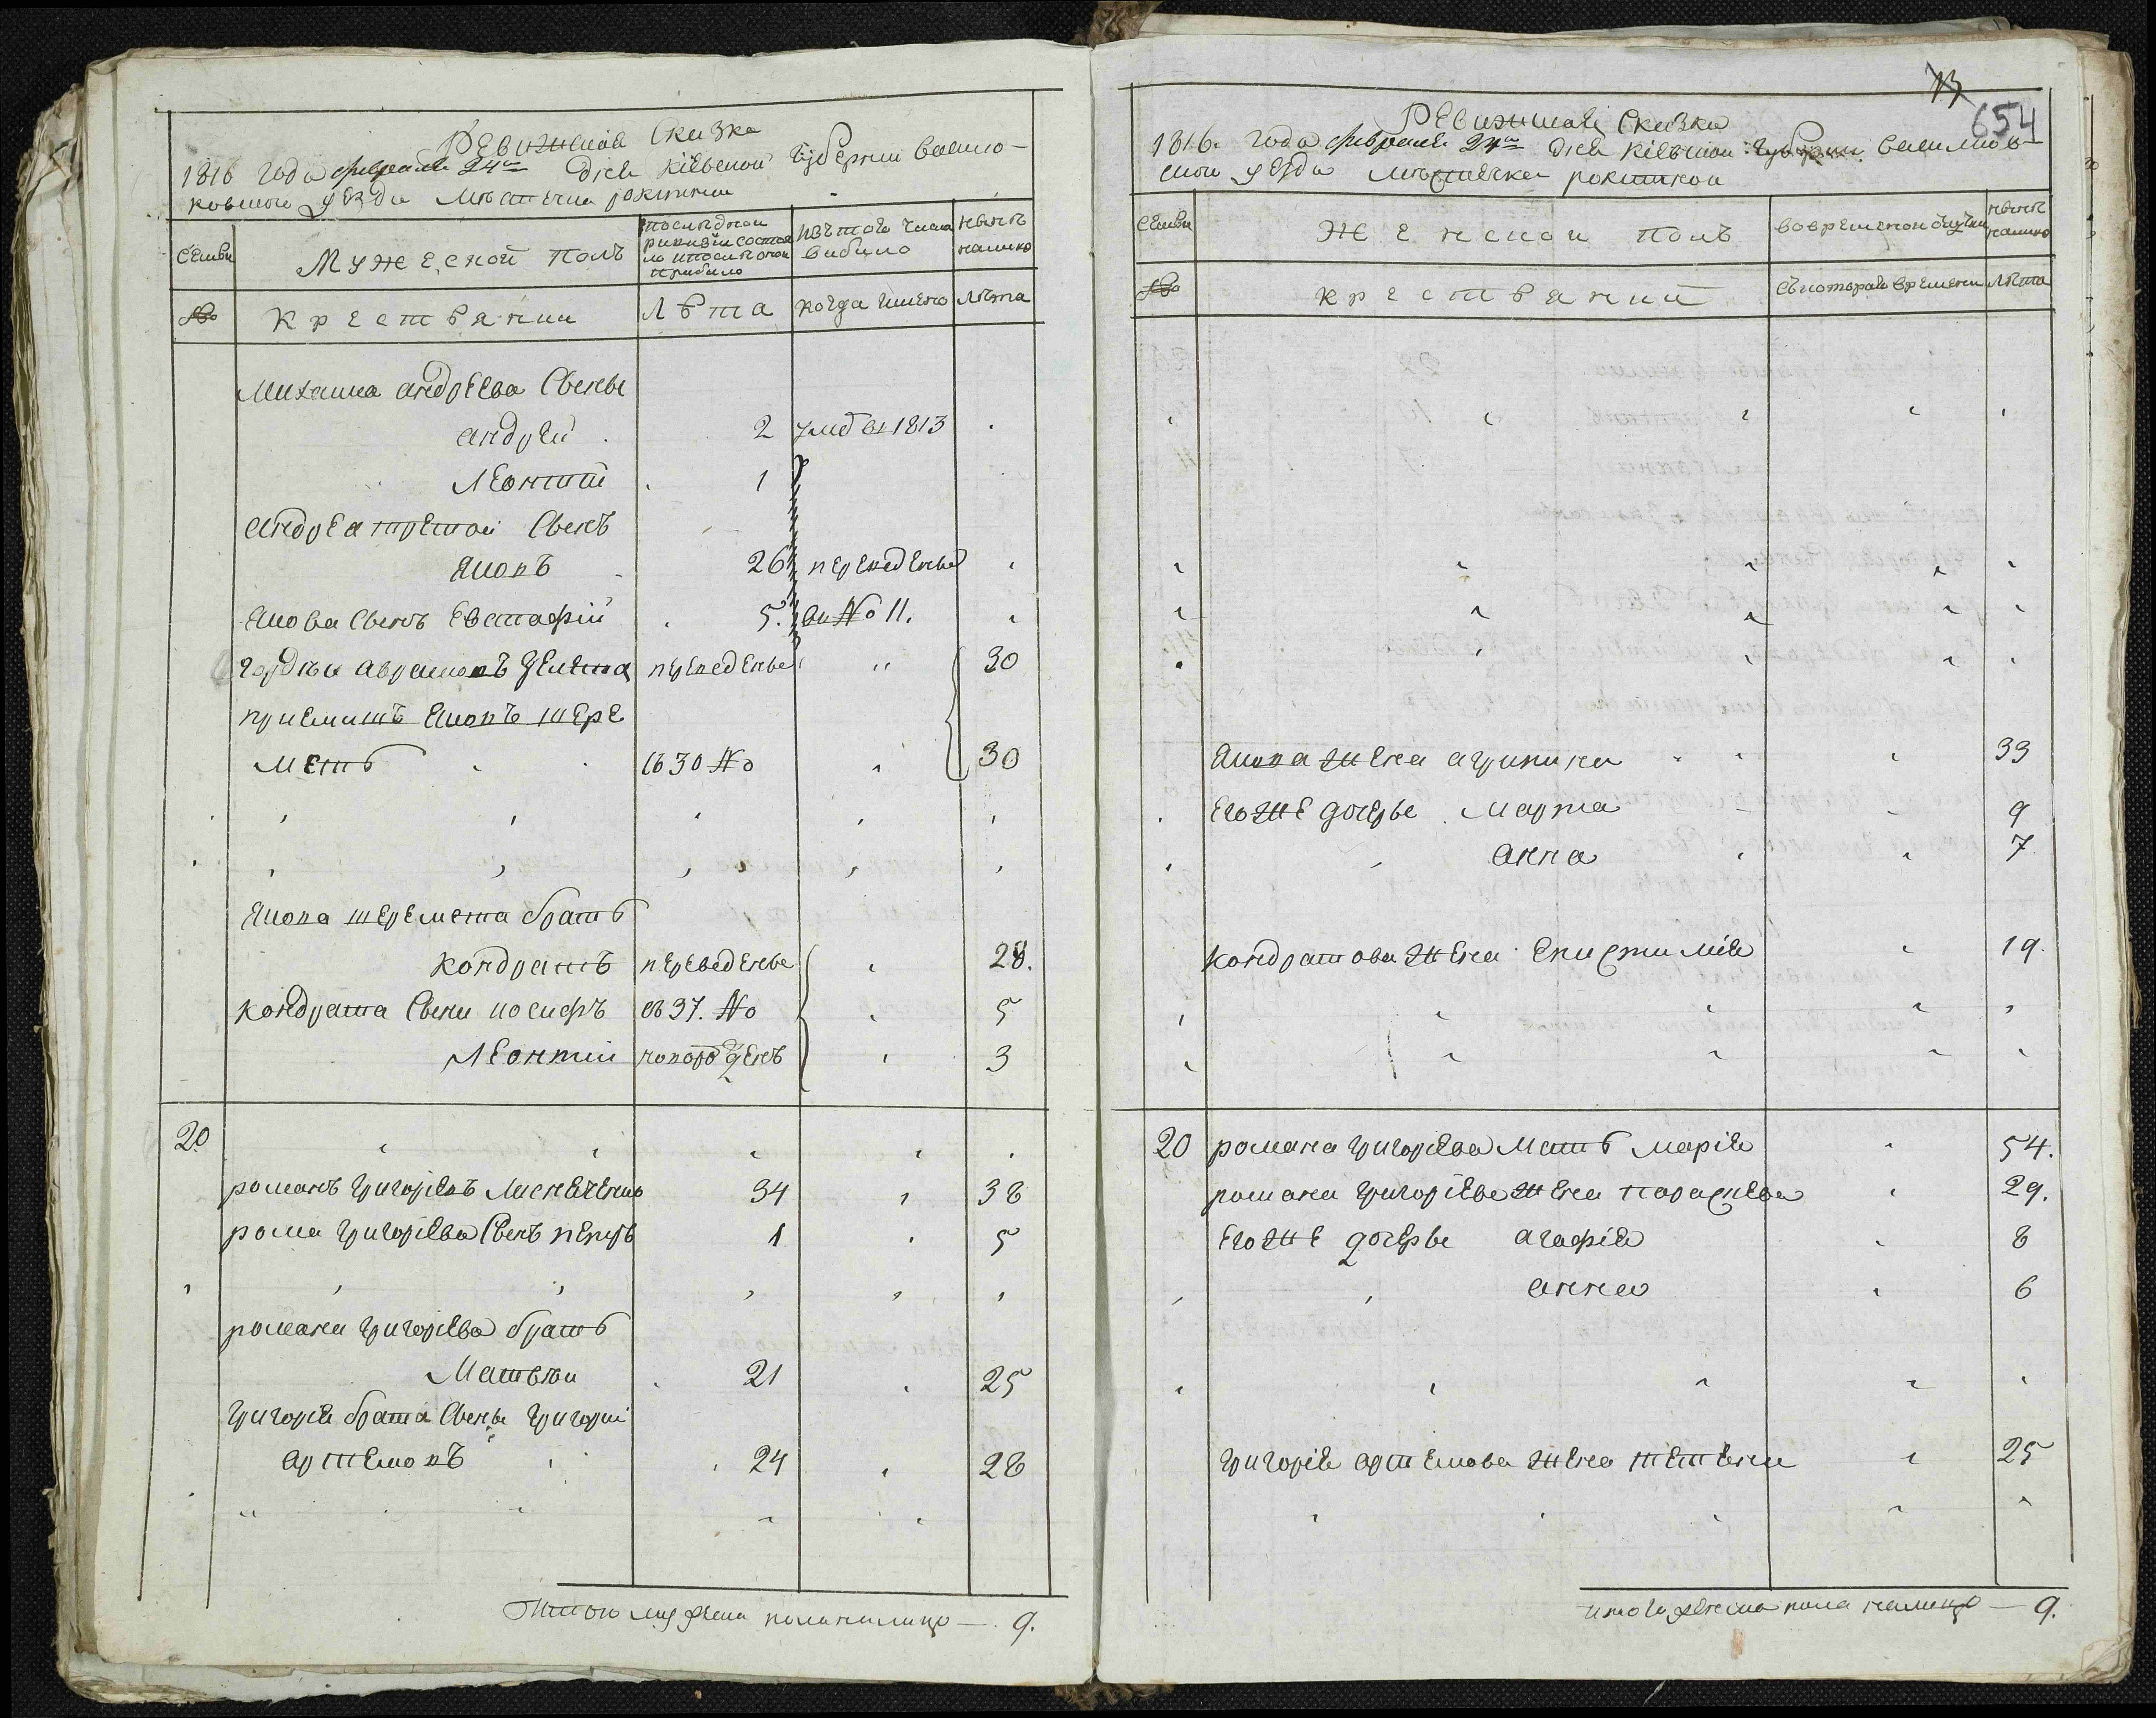 Ревижская Сказка
1816 года февраля 24го дня Кіевской Губернии Василь-
ковского уезда местечка рокитни
семьи
Мужеской полъ
последнои ревизии состоя
ло и после оной
прибыло
изъ того числа
выбыло
ныне
налицо
№
крестьянии
Лѣта
когда имено
лѣта
Михаила андреева сыны
андрей 2 умеб въ 1813
Леонтий 1
андрея третой сынъ
Яковъ 26 переведены
Якова сынъ Евстафий 5. въ № 11.
гордѣи аврамовъ переведены " 30
приемишъ Яковъ шере
метъ съ 30 № 30
Якова шеремета братъ
кондратъ переведены 28.
кондрата сыны иосифъ съ 37. № 5
Леонтий новорожденъ 3
20
романъ григориевъ 34 38
рома григориева сынъ петръ 1 5
романа григориева братъ
Матвѣи 21 25
григория брата сыны григорий
артемовъ 24 28
Итого муж пола налицо — 9.
13
654
Ревижская Сказка
1816. года февраля 24го дня Кіевской Губернии Васильков-
ского уезда местечка рокитной
семьи
Женской полъ
во временной отлучки
ныне
налицо
№
крестьянии
съ которай времени
лѣта
Якова жена агрипина 33
Егоже дочеры Марта 9
анна 7
кондратова жена Епистимия 19.
20 романа григориева мать мария 54.
романа григориева жена параскева 29.
Егоже дочеры агафия 8
анна 6
григория артемова жена тетяна 25
итого женска пола налицо — 9.